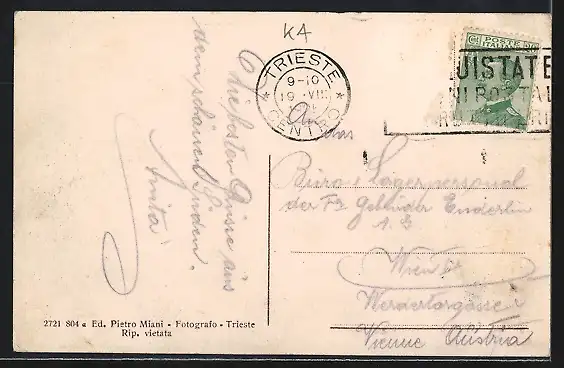 KA
TRIESTE
9-10
19 VIII
CENTRO
POSTE
ITALIANE
UISTATE
NI POSTAL
An
das
Büro & Lagerpersonal
der Fa Gebrüder Enderlin
Wien I.
Werdertorgasse
Vienne Austria
Die besten Grüsse aus
dem schönen Süden.
Anita
2721 804 a Ed. Pietro Miani - Fotografo - Trieste
Rip. vietata